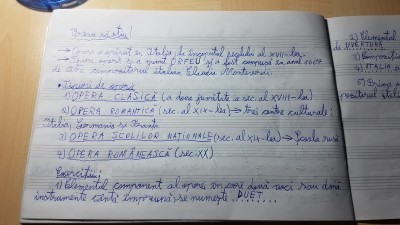 Vreau să știu!
→ Opera a apărut în Italia, la începutul secolului al XVII-lea.
→ Prima operă s-a numit ORFEU și a fost compusă în anul
de către compozitorul italian Claudio Monteverdi.
• Tipuri de operă
1) OPERA CLASICĂ (a doua jumătate a sec. al XVIII-lea)
2) OPERA ROMANTICĂ (sec. al XIX-lea) → trei centre culturale:
Italia, Germania și Franța
3) OPERA ȘCOLILOR NAȚIONALE (sec. al XIX-lea) → Școala rusă
4) OPERA ROMÂNEASCĂ (sec. XX)
Exercițiu:
1) Elementul component al operei în care două voci sau două
instrumente cântă împreună se numește DUET
2) Elementul
de UVERTURA
3) Compoziți
4) ITALIA
5) Prima
pozitorul itali